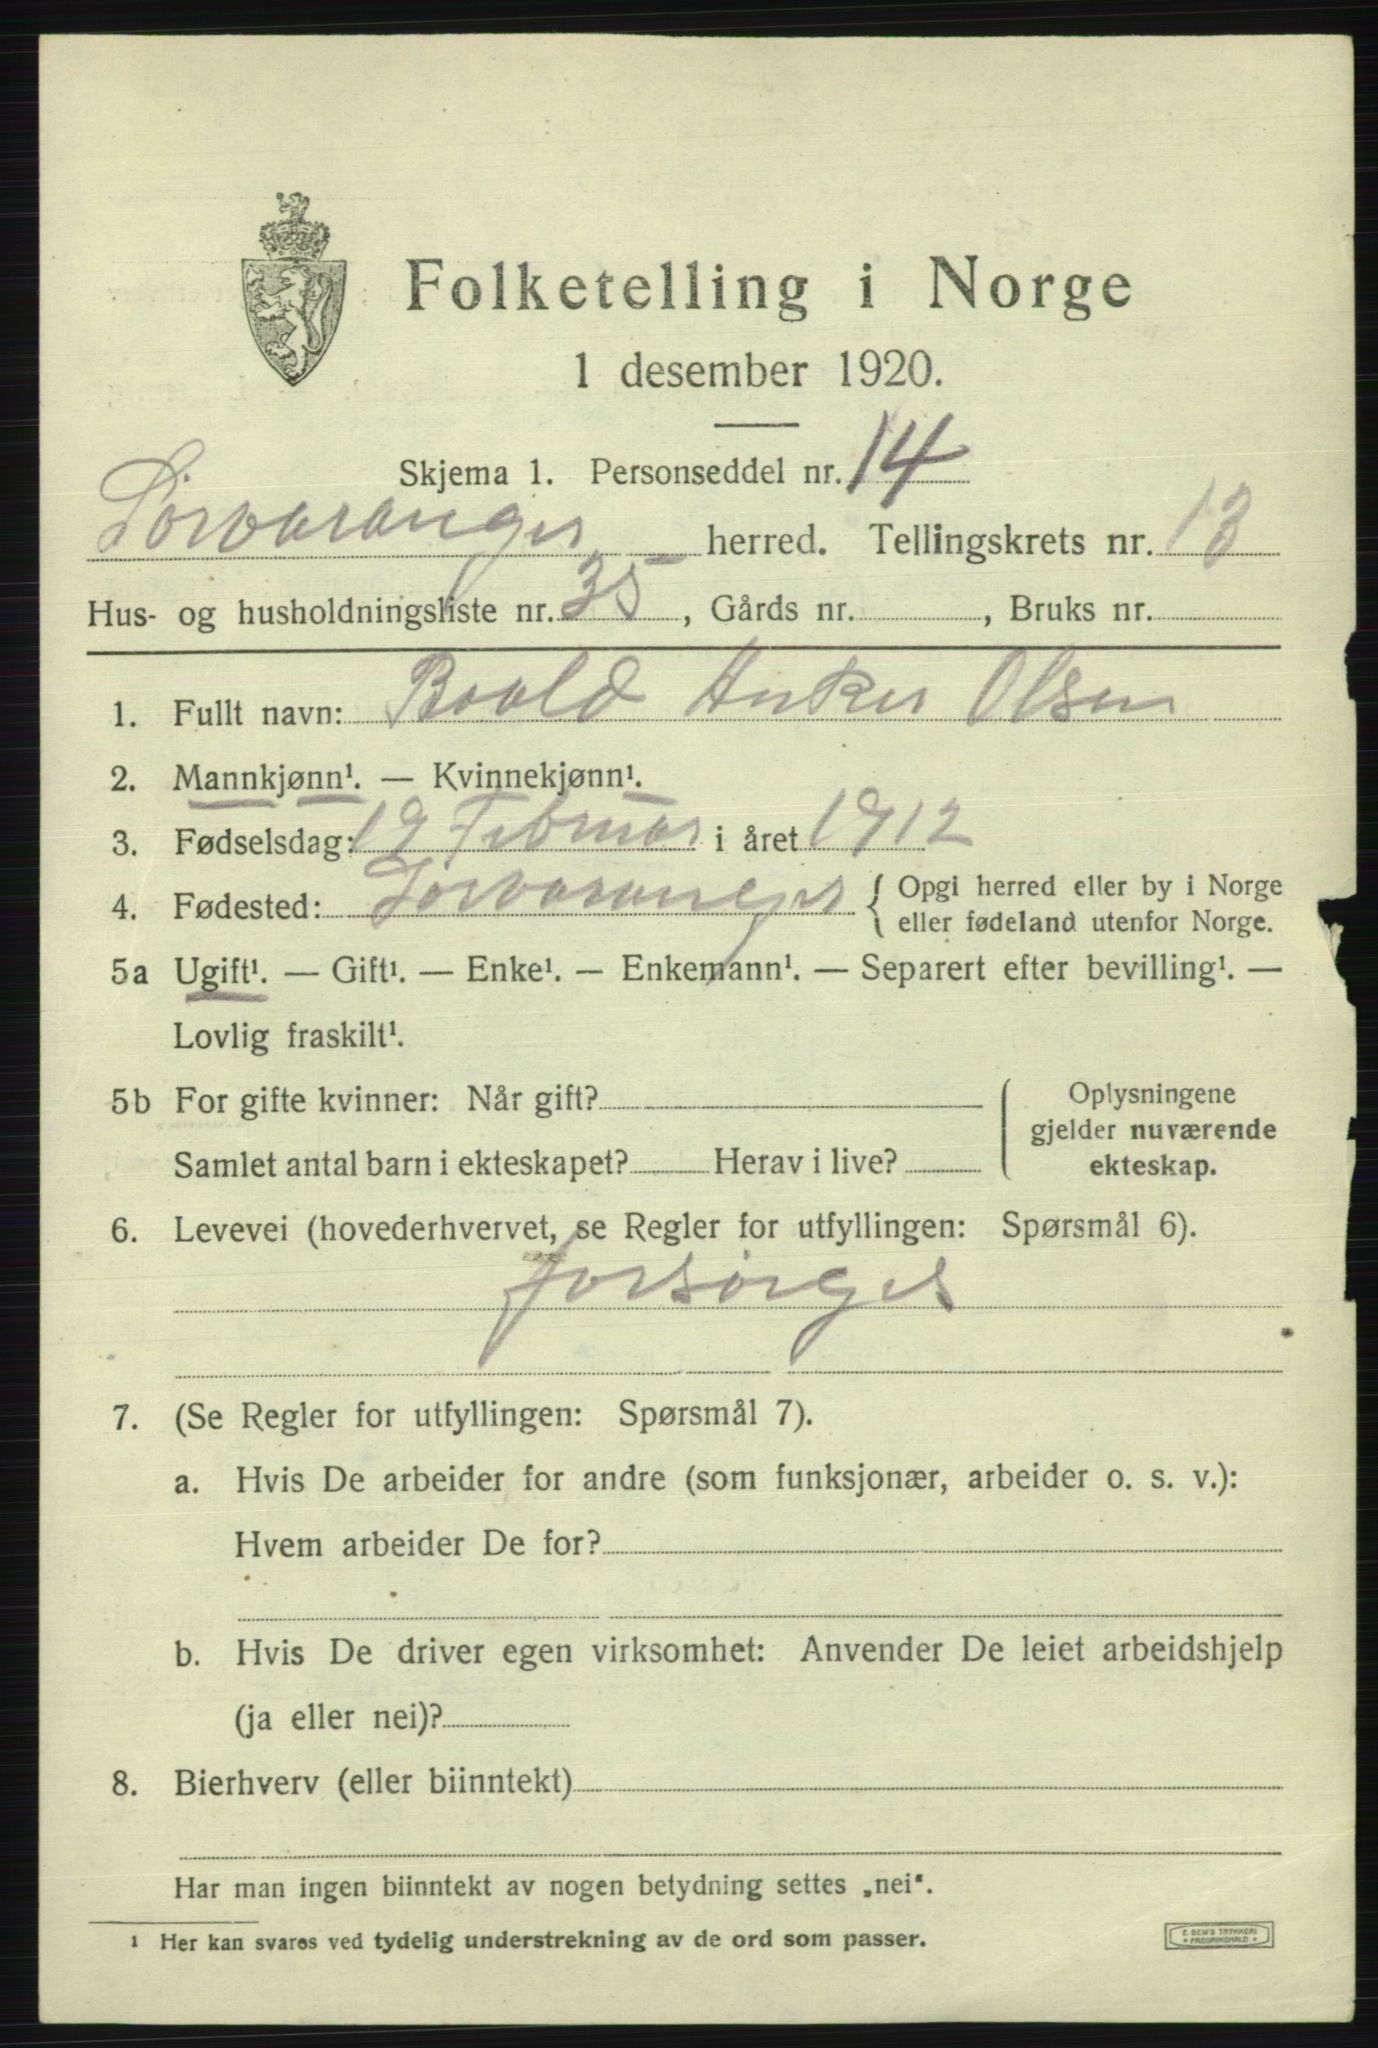 Folketelling i Norge
1 desember 1920.
Skjema 1. Personseddel nr. 14
Sörvaranger herred. Tellingskrets nr. 13
Hus- og husholdningsliste nr. 35, Gårds nr. , Bruks nr.
1. Fullt navn: Roald Anker Olsen
2. Mannkjønn¹. — Kvinnekjønn¹.
3. Fødselsdag: 19 Februar i året 1912
4. Fødested: Sörvaranger { Opgi herred eller by i Norge
eller fødeland utenfor Norge.
5a Ugift¹. — Gift¹. — Enke¹. — Enkemann¹. — Separert efter bevilling¹. —
Lovlig fraskilt¹.
5b For gifte kvinner: Når gift? ( Oplysningene
gjelder nuværende
Samlet antal barn i ekteskapet? Herav i live? ekteskap.
6. Levevei (hovederhvervet, se Regler for utfyllingen: Spørsmål 6).
forsörges
7. (Se Regler for utfyllingen: Spørsmål 7).
a. Hvis De arbeider for andre (som funksjonær, arbeider o. s. v.):
Hvem arbeider De for?
b. Hvis De driver egen virksomhet: Anvender De leiet arbeidshjelp
(ja eller nei)?
8. Bierhverv (eller biinntekt)
Har man ingen biinntekt av nogen betydning settes „nei“.
¹ Her kan svares ved tydelig understrekning av de ord som passer.
E. SEM'S TRYKKERI
FREDRIKSHALD